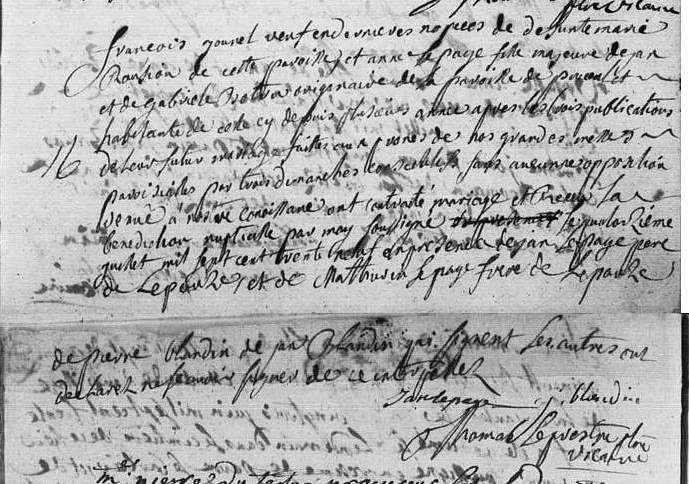 vicaire
francois gounel veuf en dernieres nopces de defunte marie
de cette paroisse et anne le page fille majeure de jan
et de gabriele originaire de la paroisse de et
habitante de cete cy depuis plusieurs annee apres les trois publications
16
de leur futur mariage faites aux prones de nos grandes messes
paroissiales par trois dimanches consecutifs sans aucunne opposition
venuë à notre conoissance ont contracté mariage et receu la
benediction nuptialle par moy soussigné le quatorzième
juillet mil sept cent trente neuf en presence de jan le page pere
de Lepouze, et de Mathurin Le page frere de Lepouze
de pierre blandin de jan blandin qui signent Les autres ont
declarez ne scavoir signer de ce interpellez
Jan lepage p. blandin
Thomas Lepvestre
vicaire